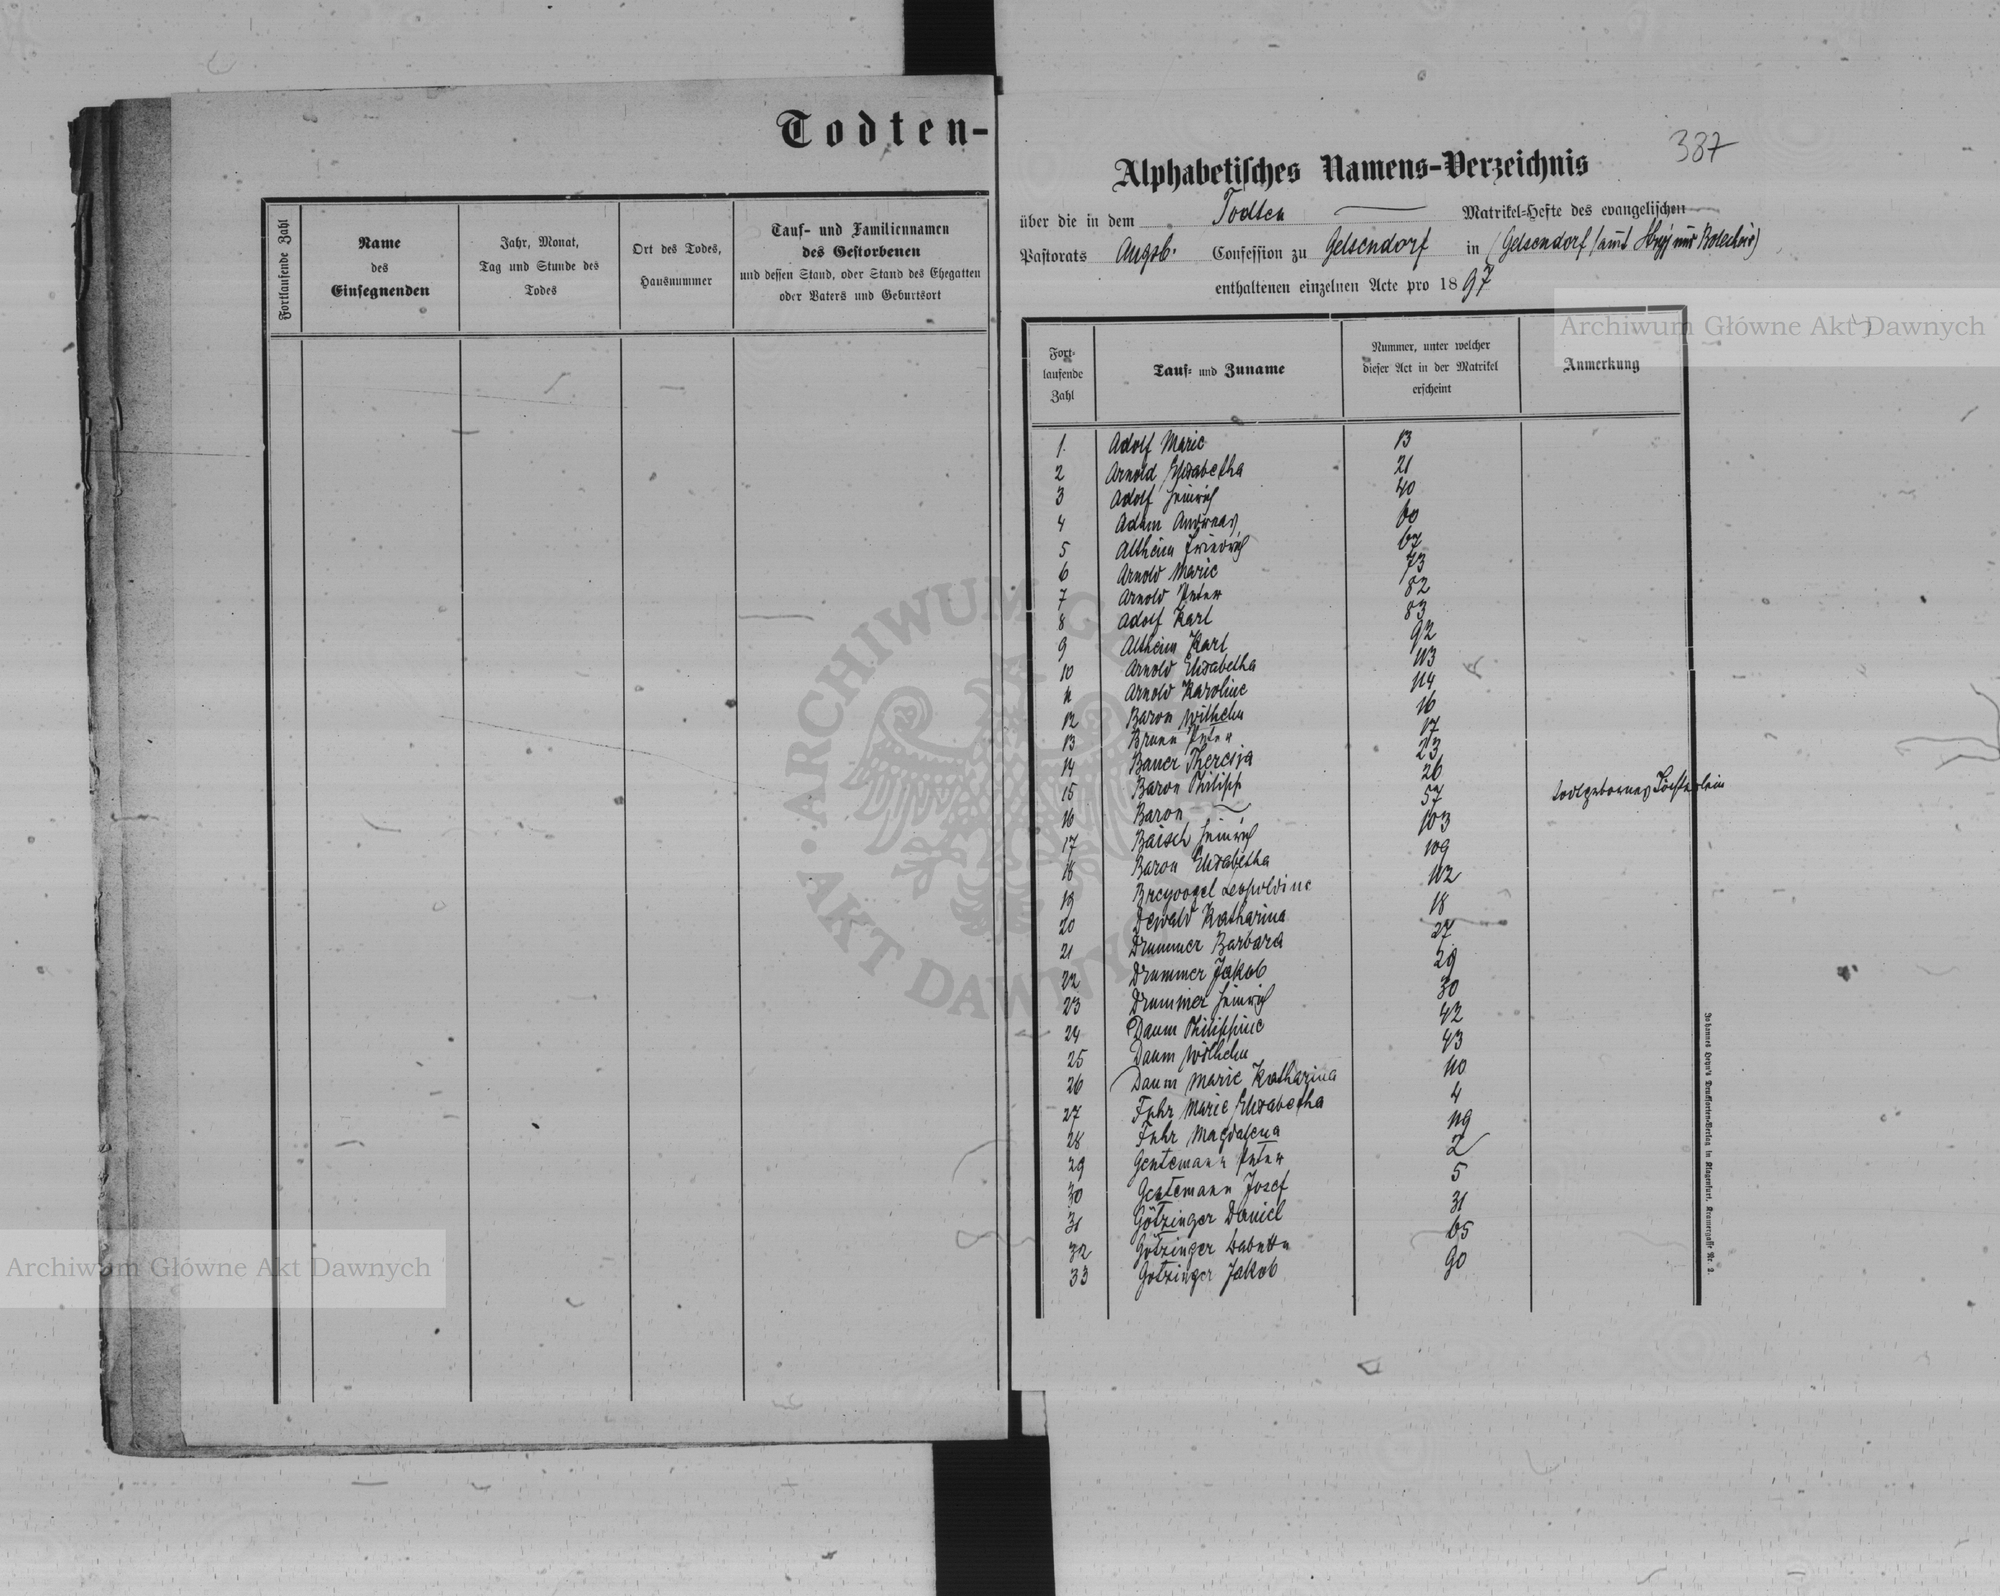 Todten-
Fortlaufende Zahl
Name
des
Einsegnenden
Jahr, Monat,
Tag und Stunde des
Todes
Ort des Todes,
Hausnummer
Tauf- und Familiennamen
des Gestorbenen
und dessen Stand, oder Stand des Ehegatten
oder Vaters und Geburtsort
387
Alphabetisches Namens-Verzeichnis
über die in dem Todten Matrikel-Hefte des evangelischen
Pastorats Augsb. Confession zu Gelsendorf in (Gelsendorf samt Stryj und Bolechow)
enthaltenen einzelnen Acte pro 1897
Fort-
laufende
Zahl
Tauf- und Zuname
Nummer, unter welcher
dieser Act in der Matrikel
erscheint
Anmerkung
1. Adolf Marie 13
2 Arnold Elisabetha 21
3 Adolf Heinrich 40
4 Adam Andreas 60
5 Altheim Friedrich 67
6 Arnold Marie 73
7 Arnold Peter 82
8 Adolf Karl 83
9 Altheim Karl 92
10 Arnold Elisabetha 113
11 Arnold Karoline 114
12 Baron Wilhelm 16
13 Braun Peter 17
14 Bauer Theresja 23
15 Baron Philipp 26
16 Baron 57 todtgebornes Töchterlein
17 Baisch Heinrich 103
18 Baron Elisabetha 109
19 Breyvogel Leopoldine 112
20 Dewald Katharina 18
21 Drummer Barbara 27
22 Drummer Jakob 29
23 Drummer Heinrich 30
24 Daum Philippine 42
25 Daum Wilhelm 43
26 Daum Marie Katharina 110
27 Fuhr Marie Elisabetha 4
28 Fuhr Magdalena 119
29 Gentemann Peter 2
30 Gentemann Josef 5
31 Götzinger Daniel 31
32 Götzinger Babette 65
33 Götzinger Jakob 90
Johannes Heyn's Drucksorten-Verlag in Klagenfurt, Kramergasse Nr. 2.
Archiwum Główne Akt Dawnych
ARCHIWUM GŁ
AKT DAWNYCH
Archiwum Główne Akt Dawnych